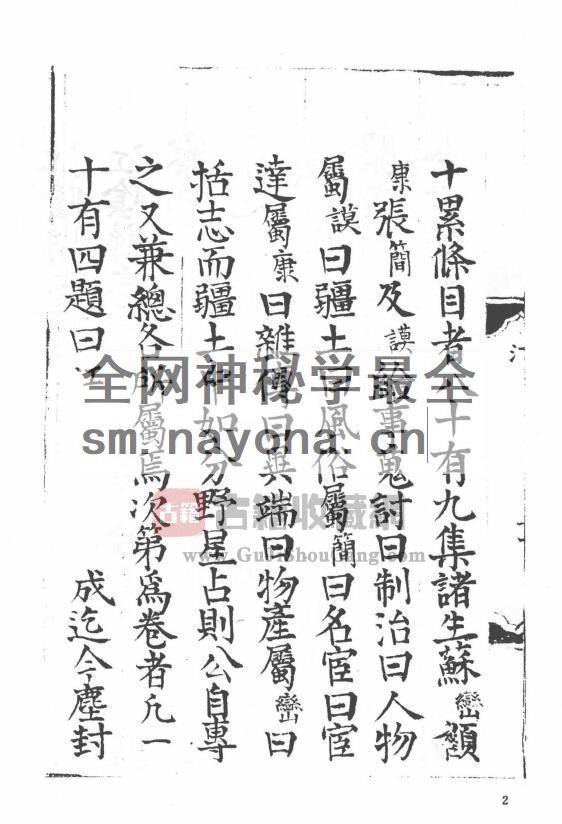 十累條目者十有九集諸生蘇巒顏
康張簡及謨事蒐討曰制治曰人物
屬謨曰疆土曰風俗屬簡曰名宦曰宦
達屬康曰雜傳曰異端曰物產屬巒曰
括志而疆土中如分野星占則公自專
之又兼總各所屬焉次第爲卷者凡一
十有四題曰成迄今塵封
全网神秘学最全
sm.nayona.cn
古籍 古籍收藏網
www.GuJiShouCang.com
2